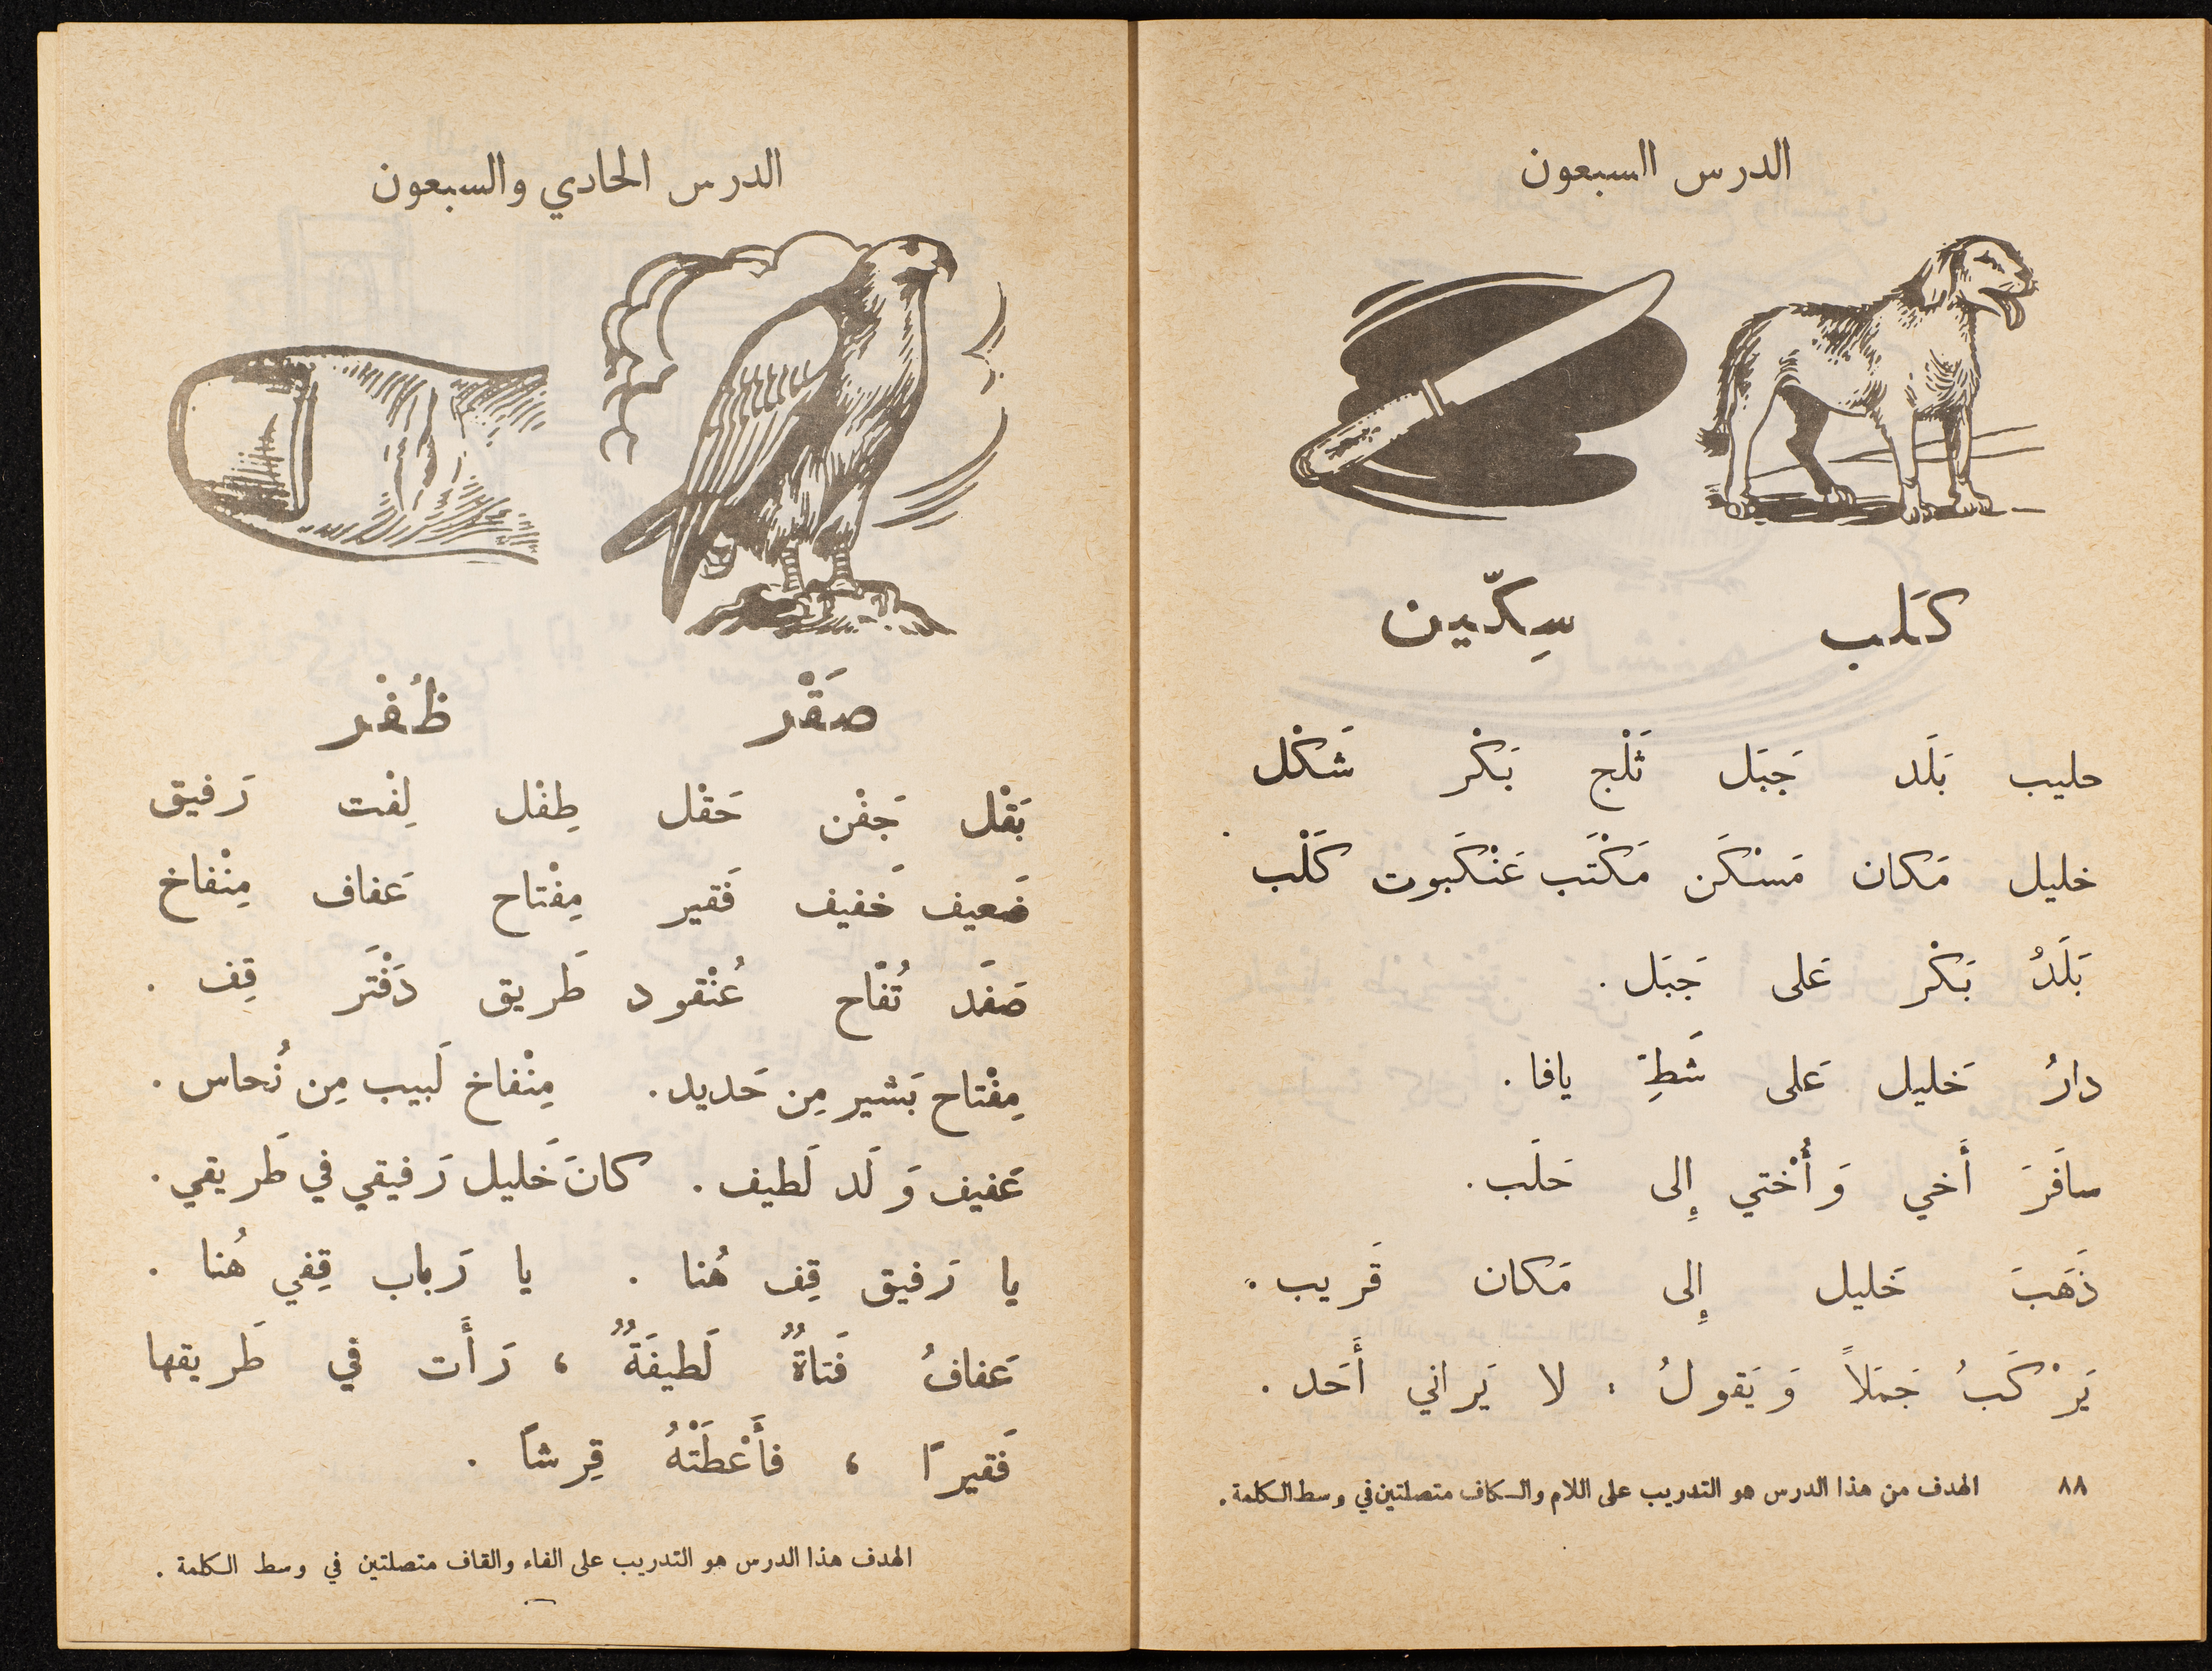 الدرس السبعون
كَلب سِكّين
حليب بَلَد جَبَل ثَلْج بَكْر شَكْل
خليل مَكان مَسْكَن مَكْتَب عَنْكَبوت كَلْب
بَلَدُ بَكْر عَلى جَبَل .
دارُ خَليل عَلى شَطِّ يافا .
سافَرَ أَخي وَ أُخْتي إِلى حَلَب .
ذَهَبَ خَليل إِلى مَكان قَريب .
يَرْكَبُ جَمَلاً وَ يَقولُ : لا يَراني أَحَد .
٨٨ الهدف من هذا الدرس هو التدريب على اللام والكاف متصلتين في وسط الكلمة .
الدرس الحادي والسبعون
صَقْر ظُفْر
بَقْل جَفْن حَقْل طِفْل لِفْت رَفيق
ضَعيف خَفيف فَقير مِفْتاح عَفاف مِنْفاخ
صَفَد تُفّاح عُنْقود طَريق دَفْتَر قِف .
مِفْتاح بَشير مِن حَديد . مِنْفاخ لَبيب مِن نُحاس .
عَفيف وَلَد لَطيف . كانَ خَليل رَفيقي في طَريقي .
يا رَفيق قِف هُنا . يا رَباب قِفي هُنا .
عَفافُ فَتاةٌ لَطيفَةٌ ، رَأَت في طَريقها
فَقيرًا ، فأَعْطَتْهُ قِرشاً .
الهدف هذا الدرس هو التدريب على الفاء والقاف متصلتين في وسط الكلمة .